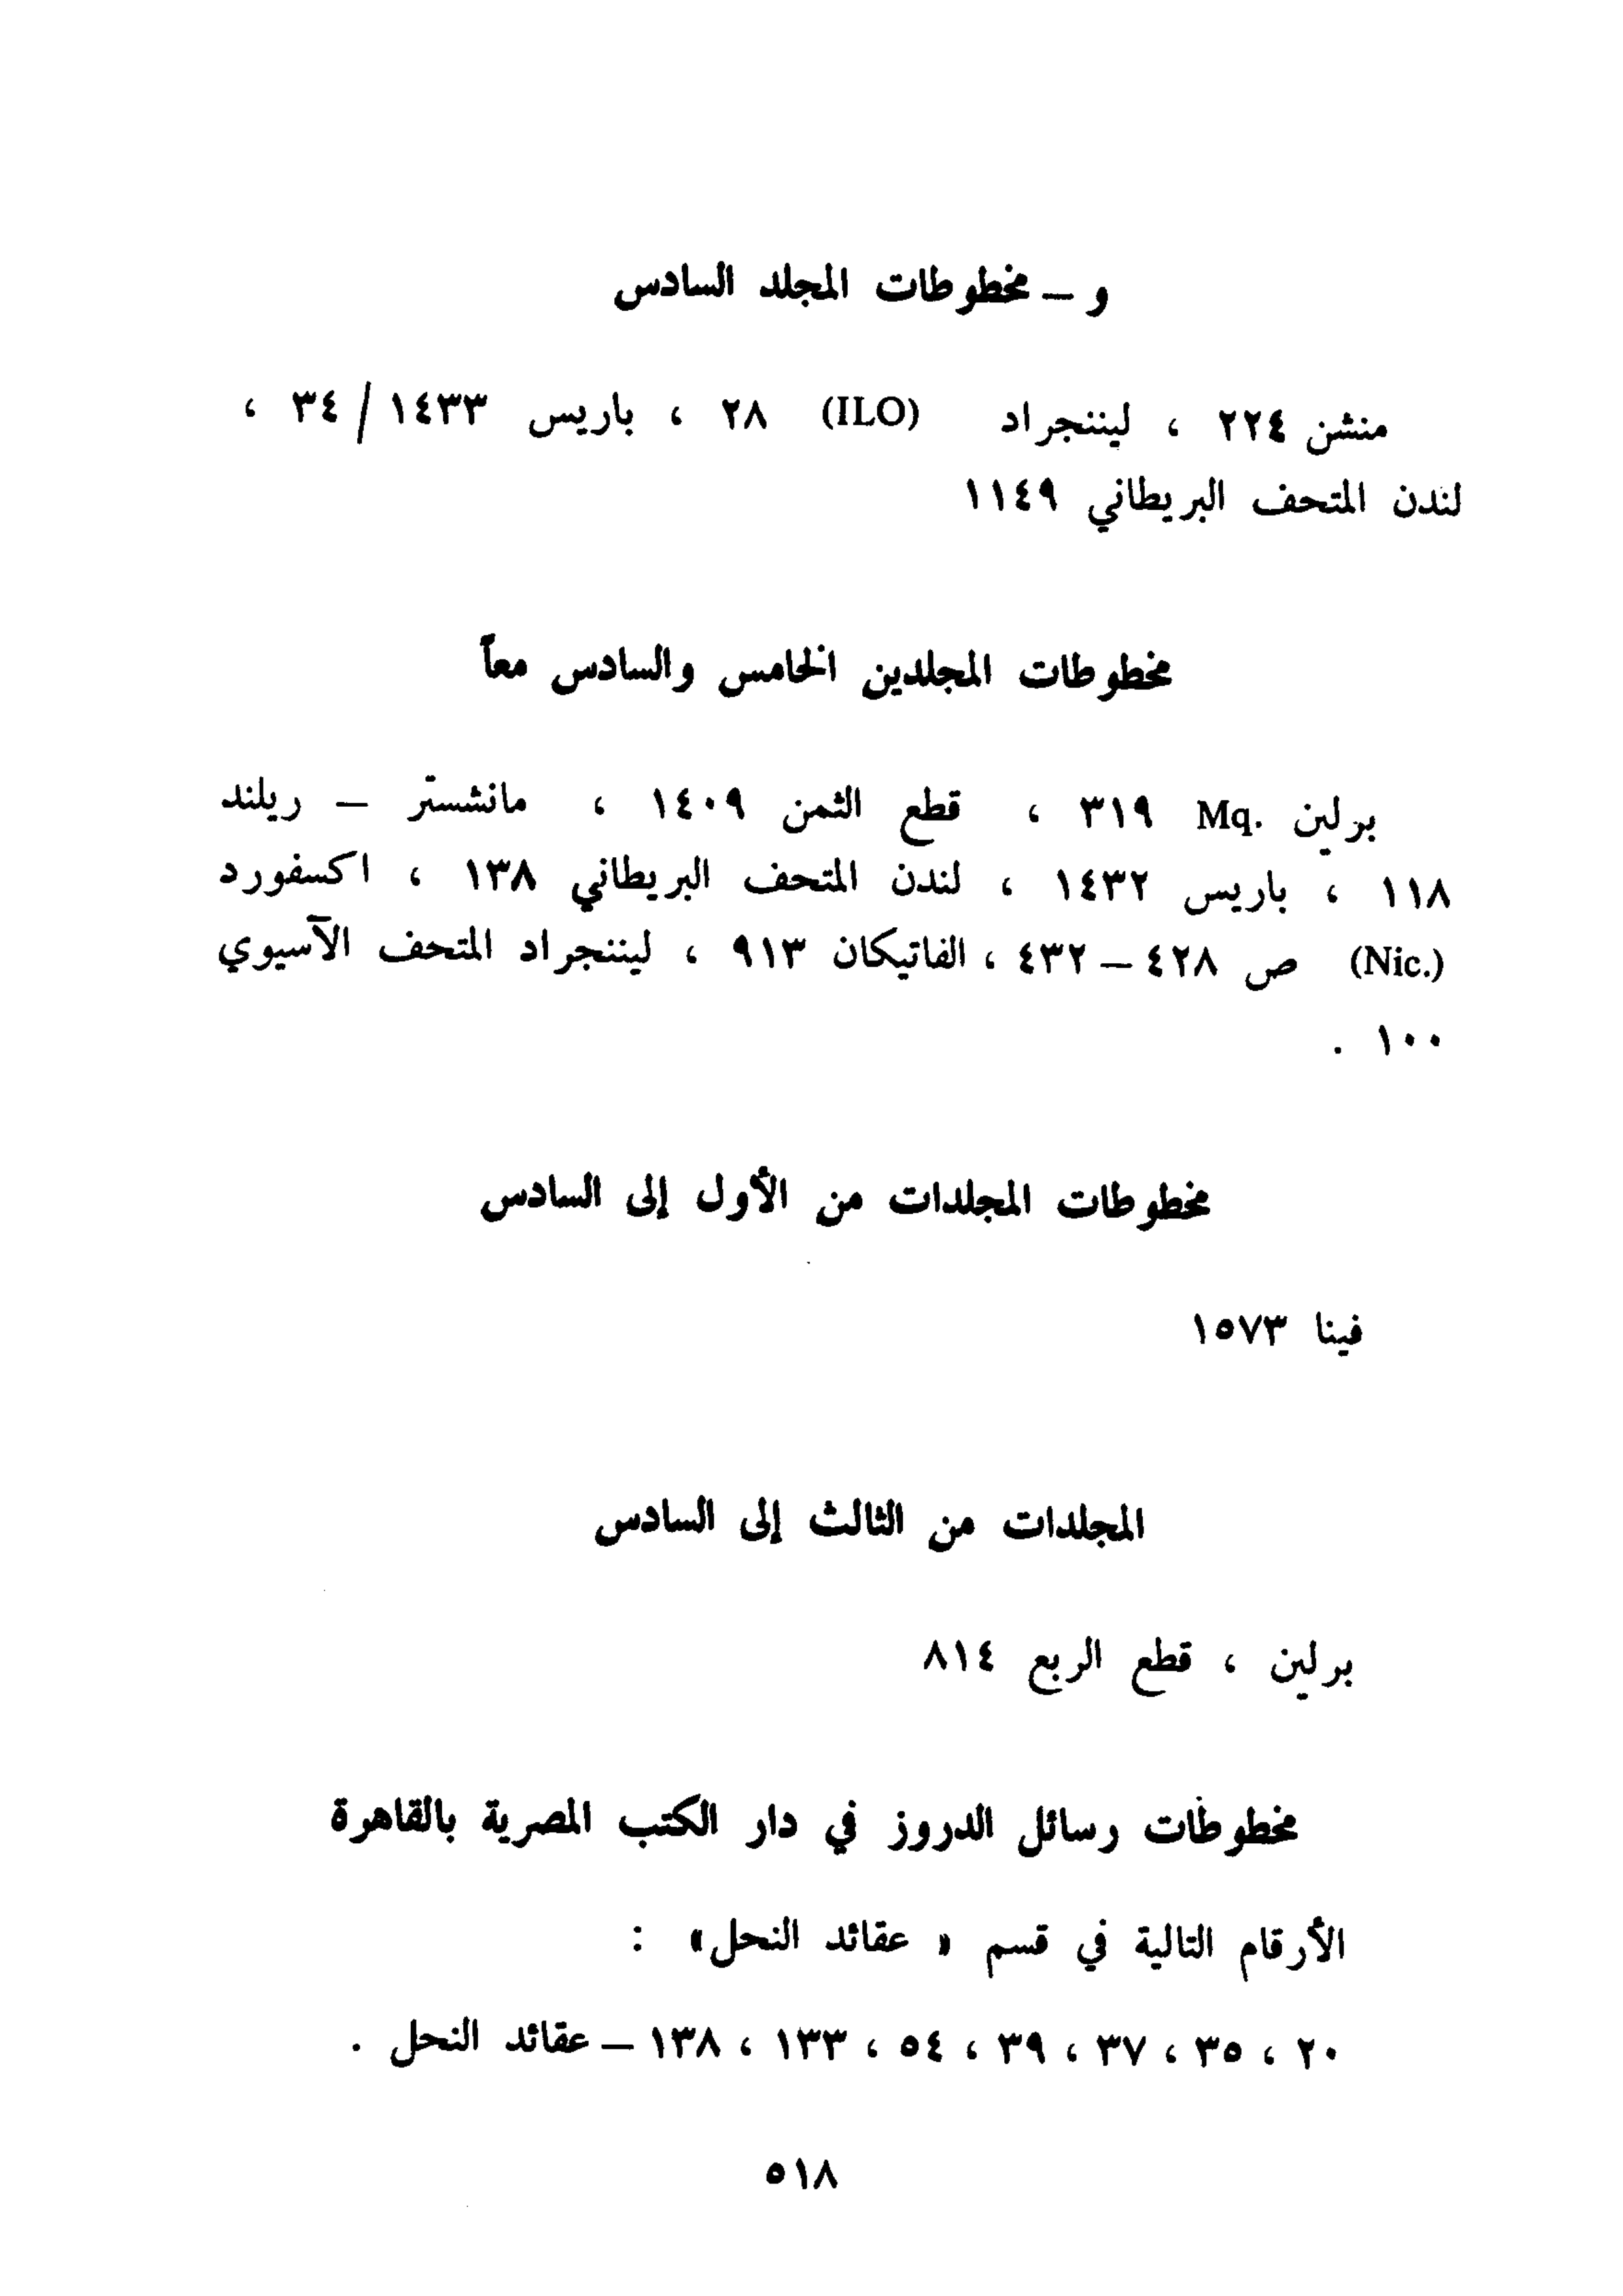 و – مخطوطات المجلد السادس
منشن ٢٢٤ ، ليننجراد (ILO) ٢٨ ، باريس ١٤٣٣ / ٣٤ ،
لندن المتحف البريطاني ١١٤٩
مخطوطات المجلدين الخامس والسادس معاً
برلين Mq. ٣١٩ ، قطع الثمن ١٤٠٩ ، مانشستر – ريلند
١١٨ ، باريس ١٤٣٢ ، لندن المتحف البريطاني ١٣٨ ، اكسفورد
(Nic.) ص ٤٢٨ – ٤٣٢ ، الفاتيكان ٩١٣ ، ليننجراد المتحف الآسيوي
١٠٠ .
مخطوطات المجلدات من الأول إلى السادس
فينا ١٥٧٣
المجلدات من الثالث إلى السادس
برلين ، قطع الربع ٨١٤
مخطوطات رسائل الدروز في دار الكتب المصرية بالقاهرة
الأرقام التالية في قسم « عقائد النحل» :
٢٠ ، ٣٥ ، ٣٧ ، ٣٩ ، ٥٤ ، ١٣٣ ، ١٣٨ – عقائد النحل .
٥١٨